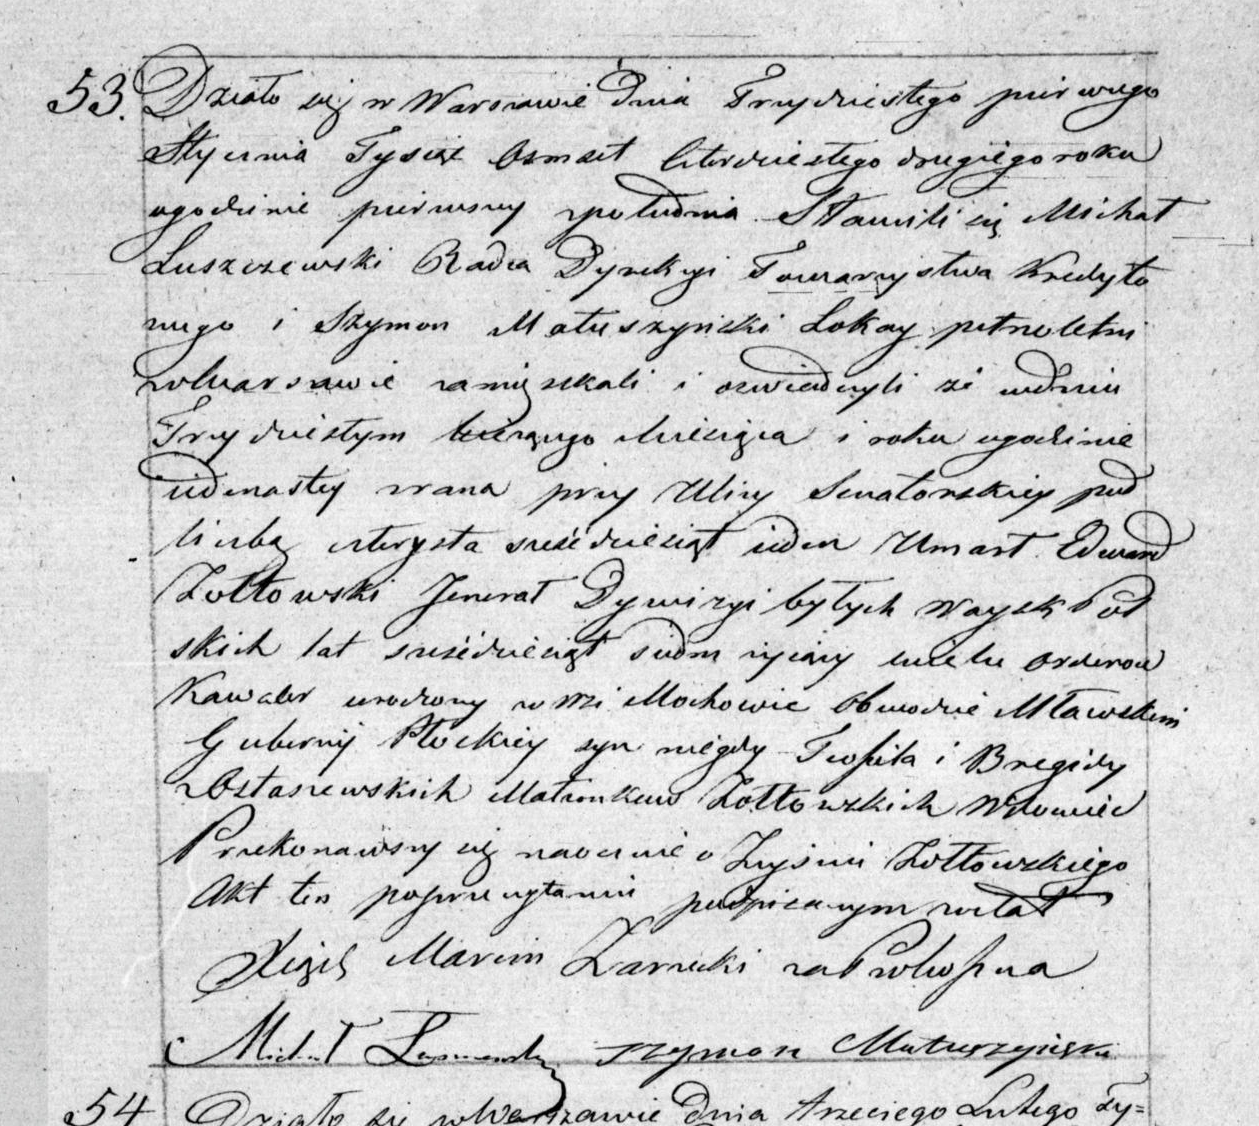 53. Działo się w Warszawie Dnia Trzydziestego pierwszego
Stycznia Tysiąc Osmset Czterdziestego drugiego roku
ogodzinie pierwszey zpołudnia Stawili się Michał
Luszczewski Radca Dyrekcyi Towarzystwa Kredyto
wego i Szymon Matuszyński Lokay pełnoletni
wWarszawie zamięszkali i oswiadczyli że wdniu
Trzydziestym bieżącego Miesiąca i roku ogodzinie
iedenastey zrana przy Ulicy Senatorskiey pod
liczbą czterysta sześćdziesiąt ieden Umarł Edward
Żołtowski Jenerał Dywizyi byłych Woysk Pol
skich lat sześćdziesiąt siedm życiący wielu orderow
Kawaler urodzony we Wsi Mochowie Obwodzie Mławskim
Gubernij Płockiey syn niegdy Teofila i Bregidy
zOstaszewskich Małżonkow Żołtowskich Wdowiec
Przekonawszy się naocznie o Zeyściu Żołtowskiego
Akt ten poprzeczytaniu podpisanym został
Xiądz Marcin Zarzecki za Proboszcza
Michał Luszczewski Szymon Matuszyński
54 Działo się wWarszawie Dnia trzeciego Lutego ty=